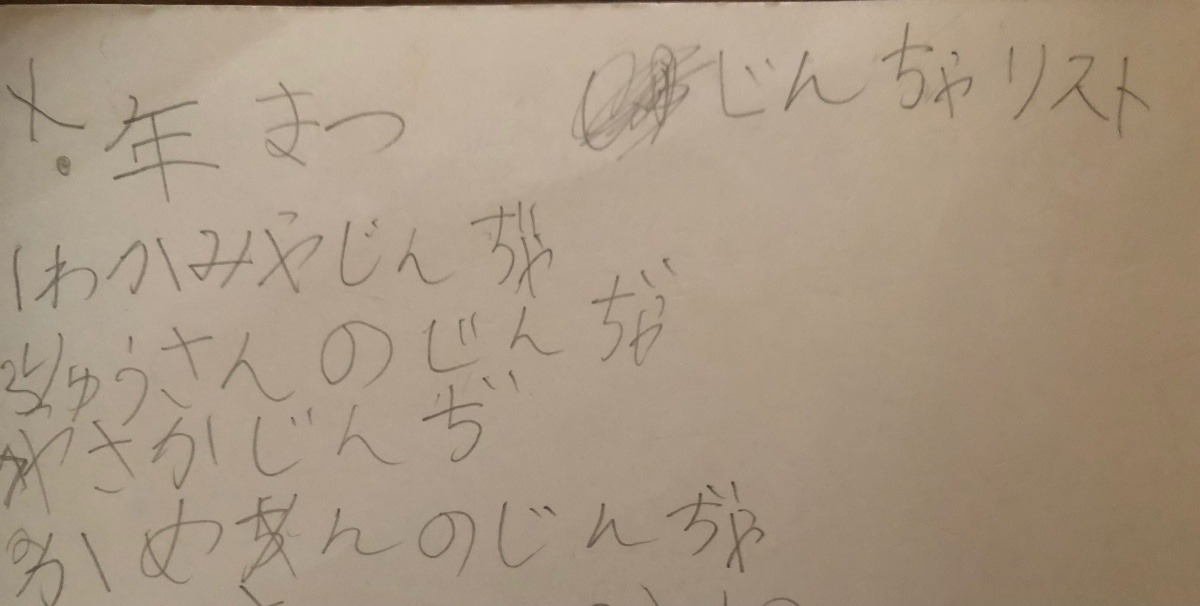 年まつ じんちゃリスト
わかみやじんぢゃ
りゅうさんのじんぢゃ
やさかじんぢ
かめさんのじんぢゃ